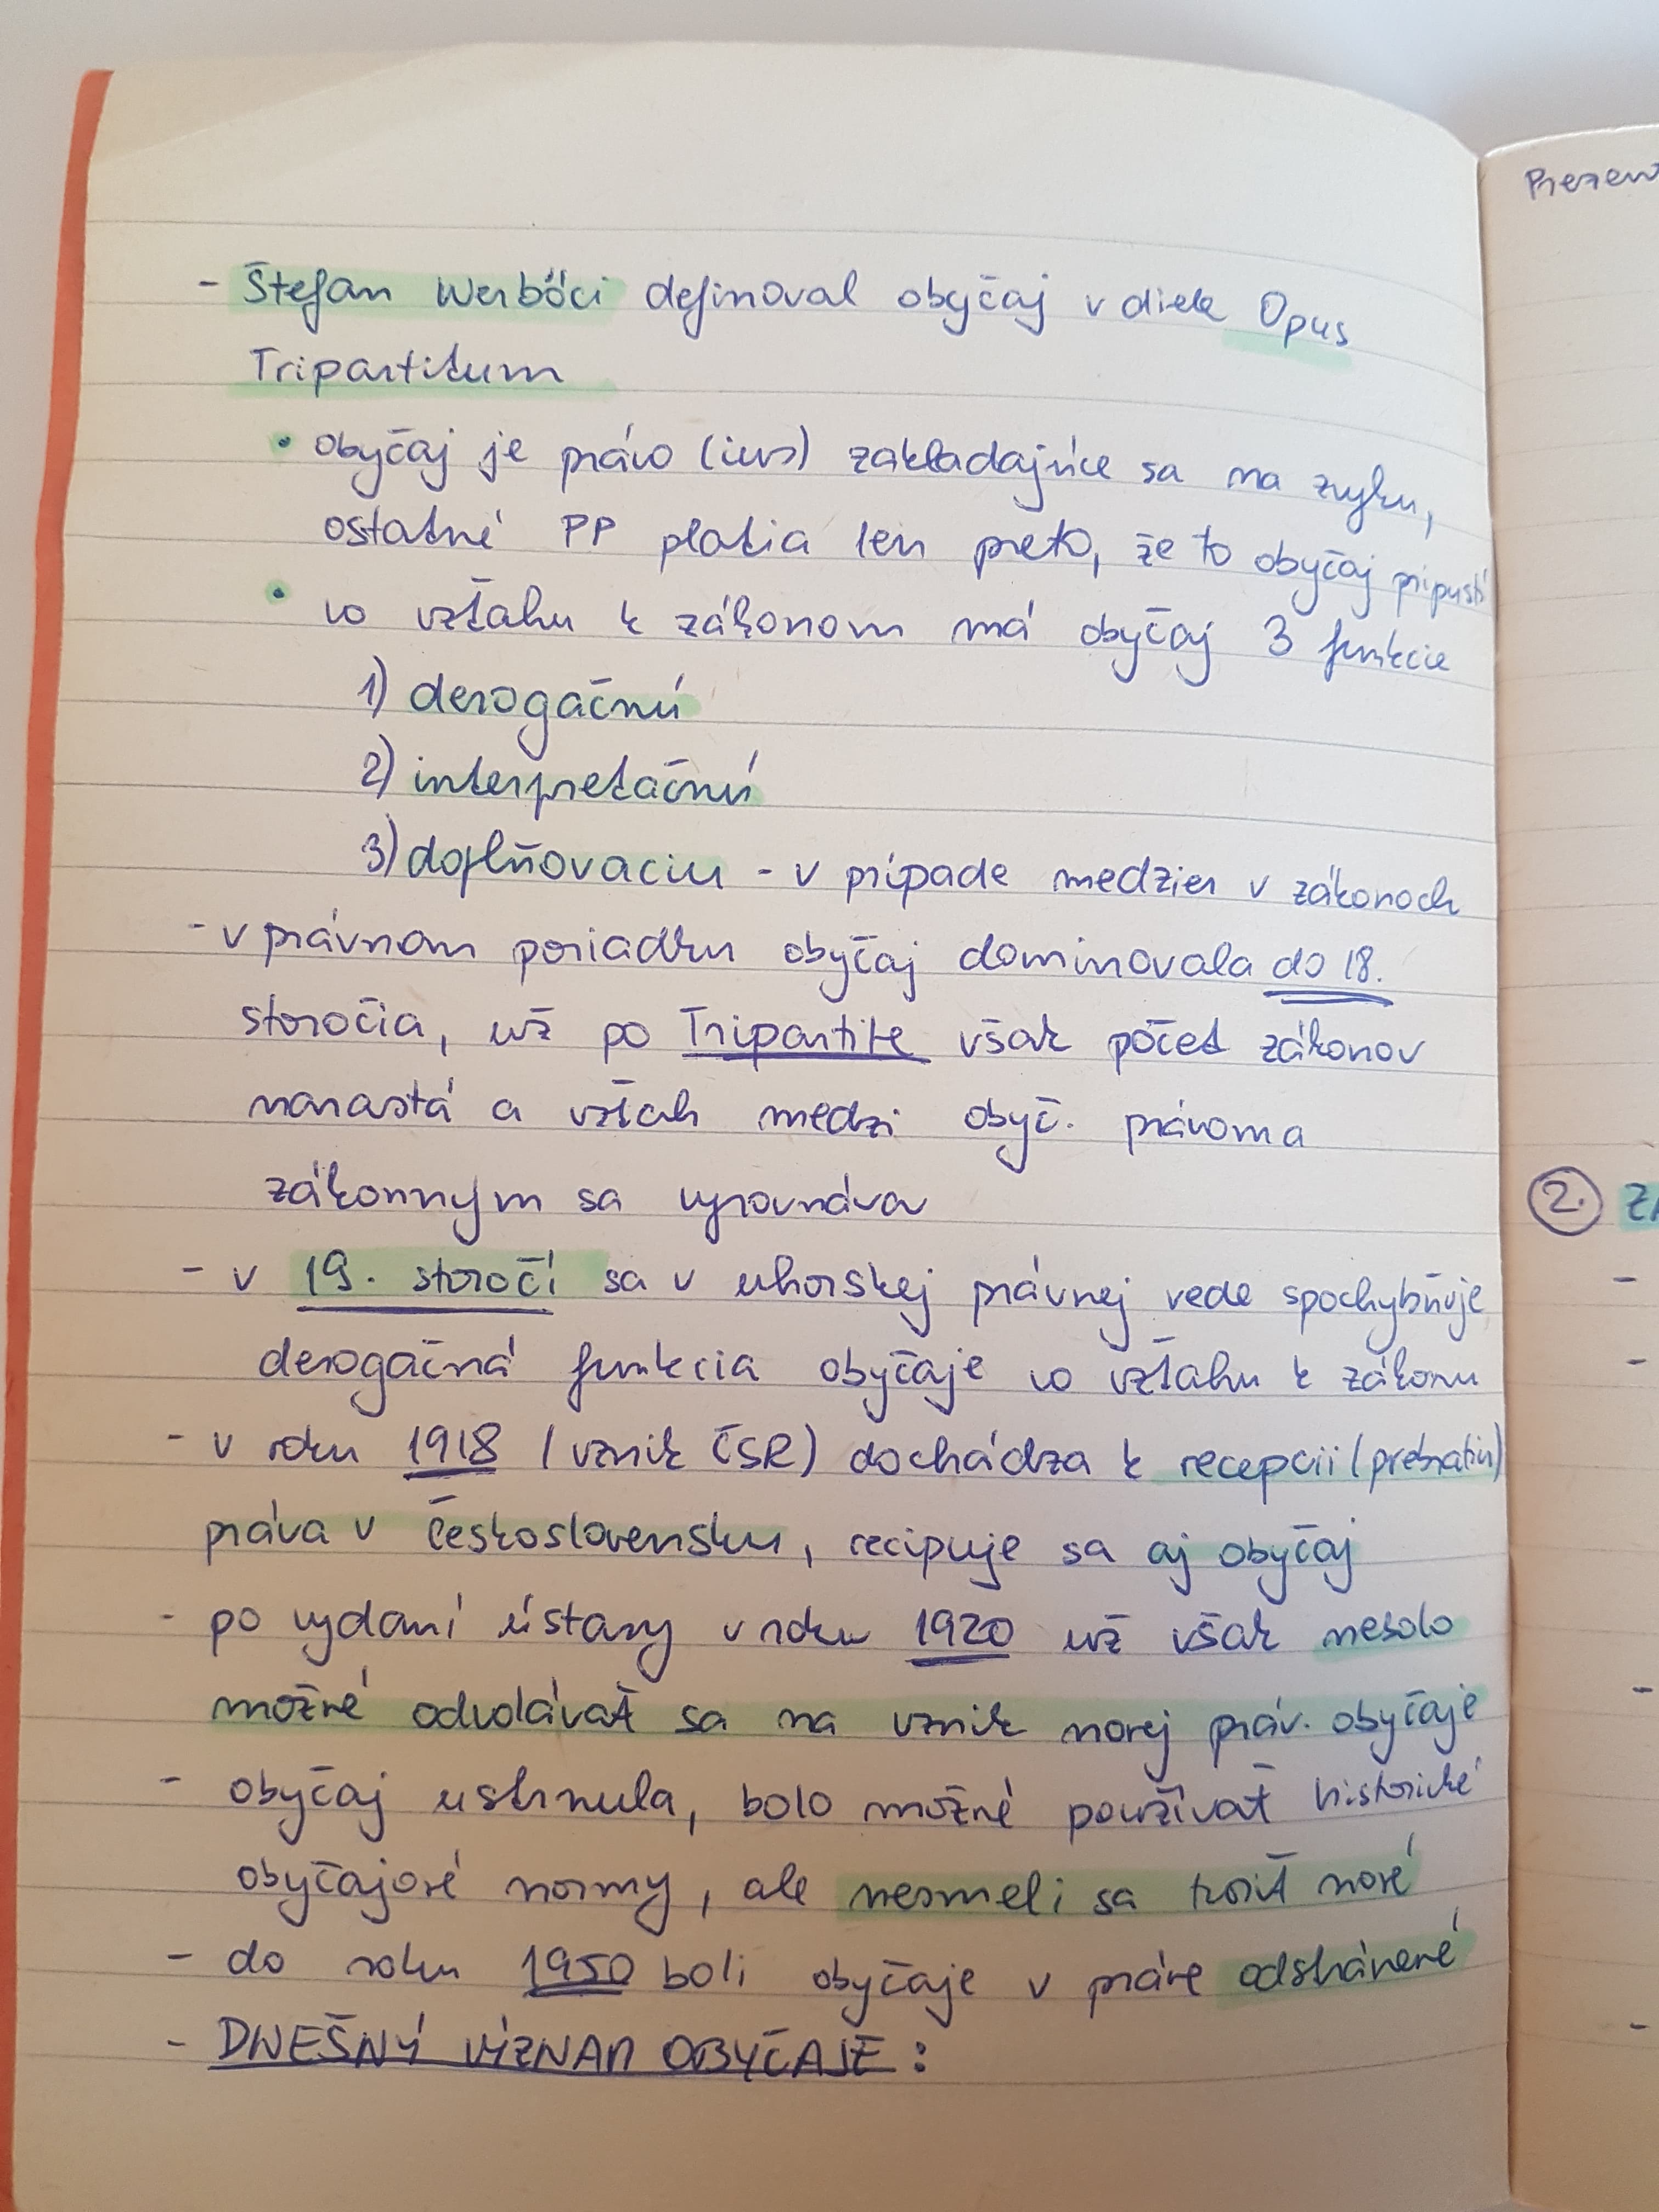 - Štefan Werbőci definoval obyčaj v diele Opus
Tripartitum
• obyčaj je právo (ius) zakladajúce sa na zvyku,
ostatné PP platia len preto, že to obyčaj pripustí
• vo vzťahu k zákonom má obyčaj 3 funkcie
1) derogačnú
2) interpretačnú
3) doplňovaciu - v prípade medzier v zákonoch
- v právnom poriadku obyčaj dominovala do 18.
storočia, už po Tripartite však počet zákonov
narastá a vzťah medzi obyč. právom a
zákonným sa vyrovnáva
- v 19. storočí sa v uhorskej právnej vede spochybňuje
derogačná funkcia obyčaje vo vzťahu k zákonu
- v roku 1918 (vznik ČSR) dochádza k recepcii (prebratiu)
práva v Československu, recipuje sa aj obyčaj
- po vydaní ústavy v roku 1920 už však nebolo
možné odvolávať sa na vznik novej práv. obyčaje
- obyčaj ustrnula, bolo možné používať historické
obyčajové normy, ale nesmeli sa tvoriť nové
- do roku 1950 boli obyčaje v práve odstránené
- DNEŠNÝ VÝZNAM OBYČAJE:
2.